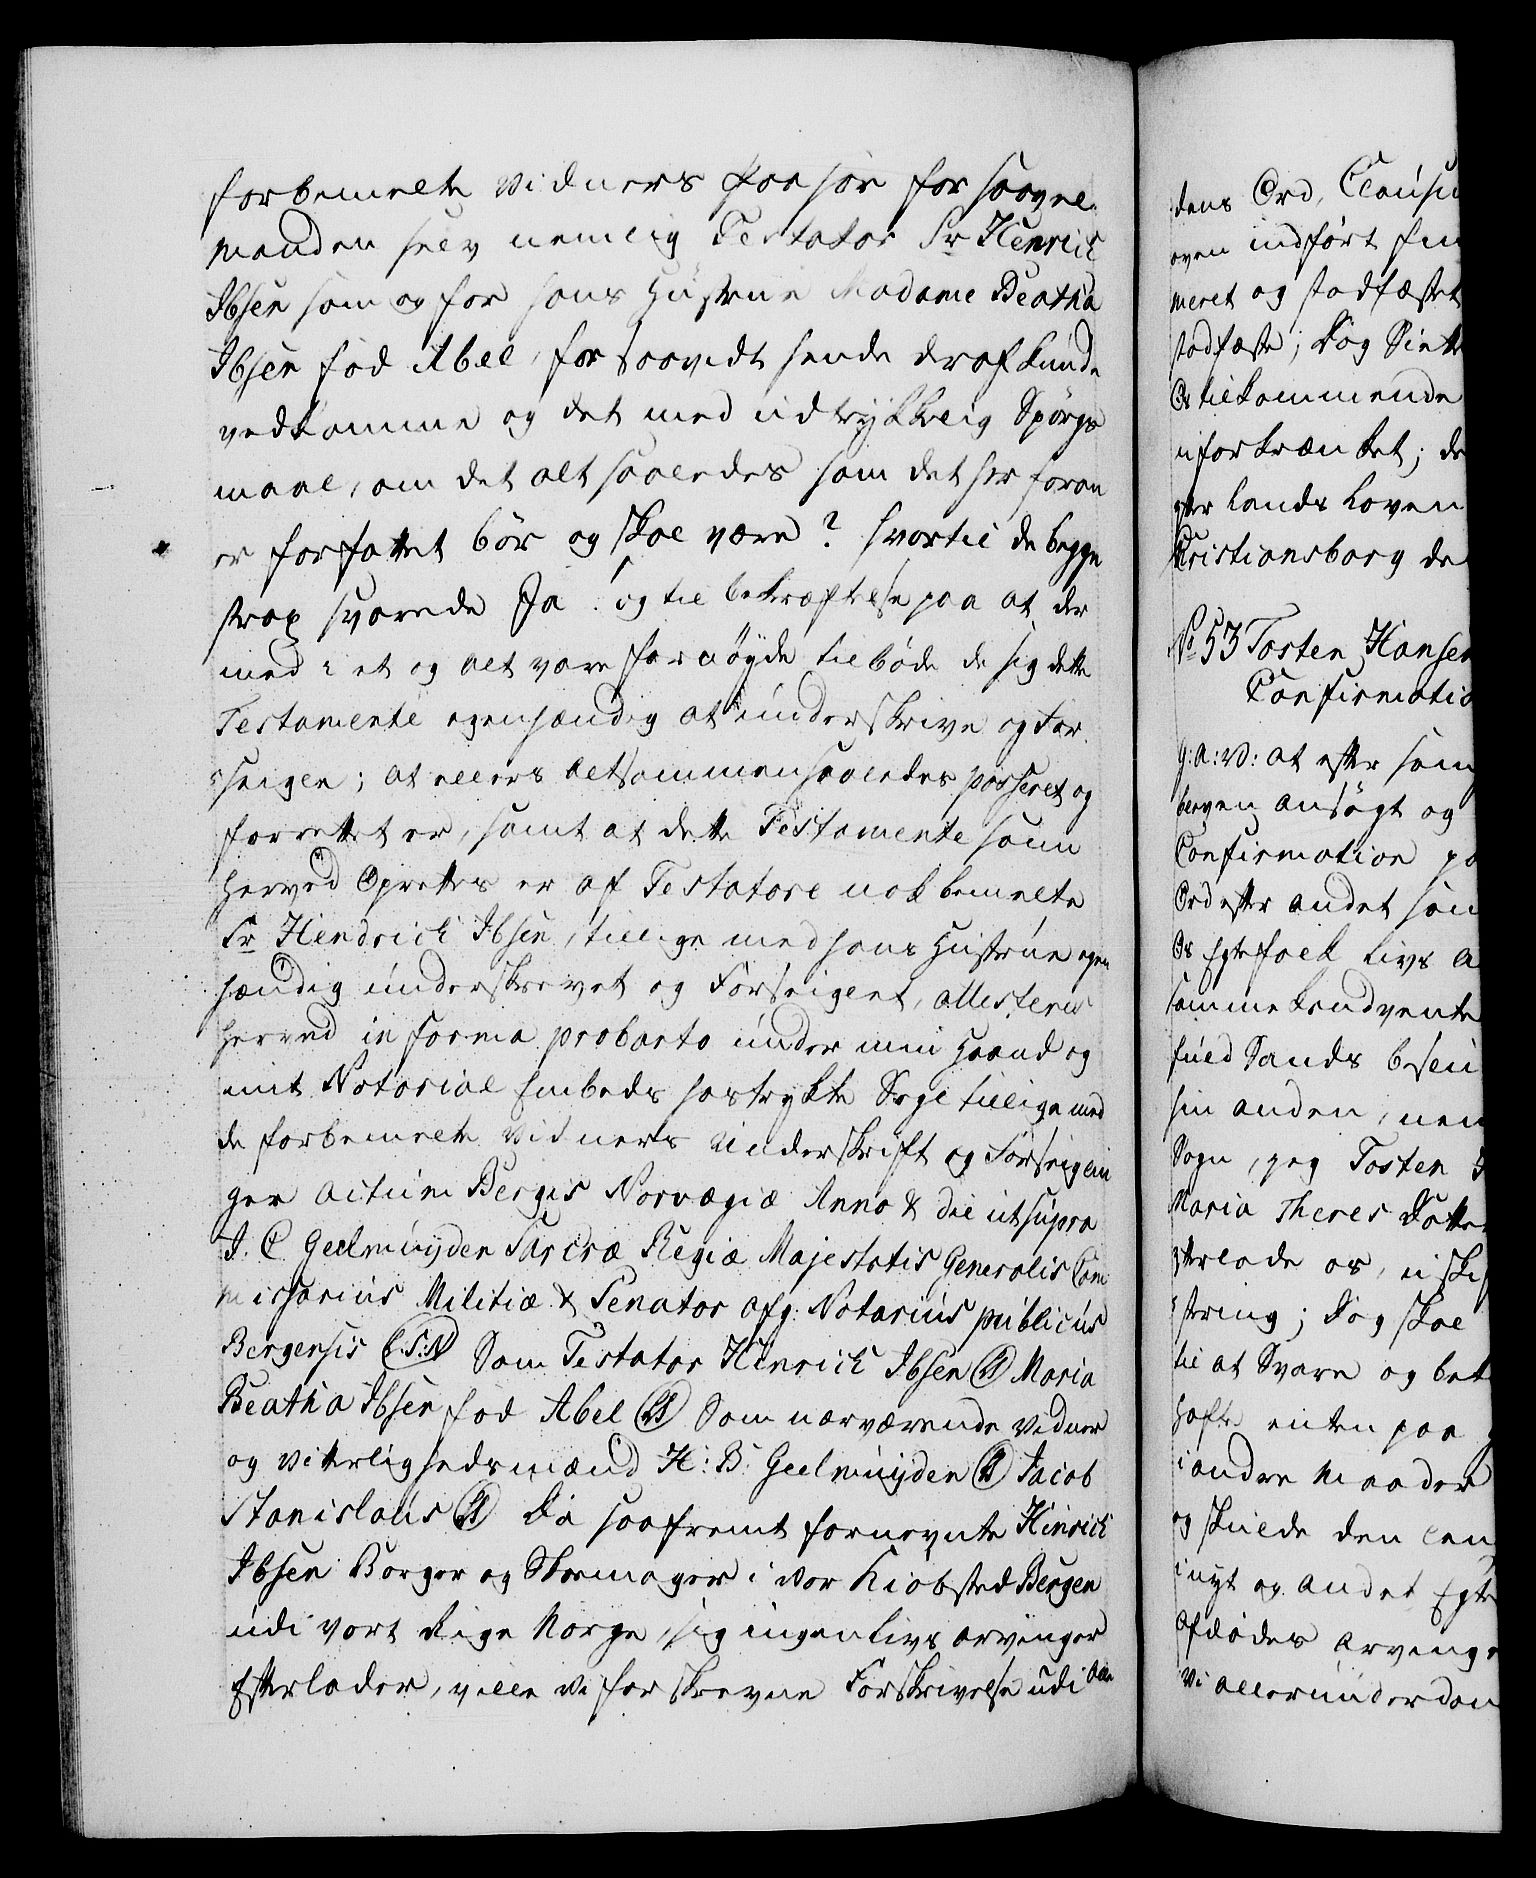 forbemelte Vidners Paahør for saavel
Manden selv nemlig Testator Sr Henrich
Ibsen som og for hans Hustrue Madame Beatha
Ibsen fød Abel, for saavidt hende deraf kunde
vedkomme og det med udtrykkelig Spørgs
maal, om det alt saaledes som det her foran
er forfattet bör og skal være? hvortil de begge
strax svarede Ja! og til bekræftelse paa at der
med i et og alt vare fornöyde tilböde de sig dette
Testamente egenhændig at underskrive og For
seigle; at ellers altsammen saaledes passeret og
forrettet er, samt at dette Testamente som
herved Oprettes er af Testatore nok bemelte
Sr Hendrich Ibsen, tillige med hans Hustrue egen
hændig underskrevet og Forseiglet, attesteres
herved in forma probanto under min Haand og
mit Notarial Embeds hostrykte Segl tillige med
de forbemelte Vidners Underskrift og Forseiglin
ger Actum Bergis Norvægiæ Anno & die ut supra
J. C. Geelmuyden Sacræ Regiæ Majestatis Generalis Com
missarius Militiæ & Senator afg. Notarius publicus
Bergensis (L.S.N) Som Testator Henrich Ibsen (LS) Maria
Beatha Ibsen fød Abel (LS) Som nærværende Vidner
og Vitterlighedsmænd H: B: Geelmuyden (LS) Jacob
Stanislaus (LS) Da saafremt fornevnte Hinrich
Ibsen Borger og Skomager i vor Kiöbsted Bergen
udi vort Rige Norge, sig ingen Livs arvinger
Efterlader, ville Vi forskrevne Forskrivelse udi alle
dens Ord, Clausu
oven indført fin
meret og stadfæstet
stadfæste; Dog Siette
Os tilkommende
uforkrænket; de
ger Lands Loven
Christiansborg de
No 53 Tosten Hansen
Confirmatio
G: A: V: at efter som
bergen ansögt og
Confirmation pa
Ord efter andet saa
Os Egtefolk Livs A
samme
sin anden, nem
Sogn, jeg Tosten
Maria Theres Datter
efterlade os, u ski
string; Dog skal
til at Svare og bet
hafte enten paa
i andre Maader
og skulde den len
i nyt og andet Egte
Afdødes Arvinge
Vi allerunderdan